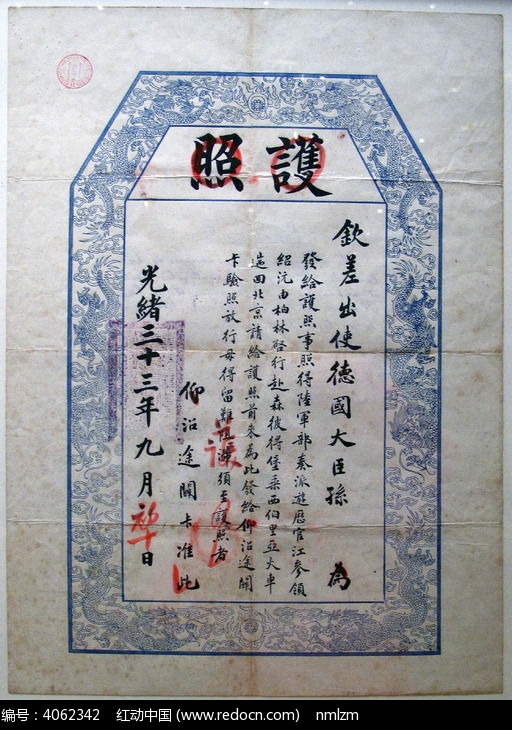 護照
欽差出使德國大臣孫 為
發給護照事照得陸軍部奏派遊歷官江參領
紹沅由柏林啓行赴森彼得堡乘西伯里亞火車
遄回北京請給護照前來為此發給仰沿途關
卡驗照放行毋得留難阻滯須至護照者
仰沿途關卡准此
光緒三十三年九月初 日
護
编号：4062342 红动中国 (www.redocn.com) nmlzm